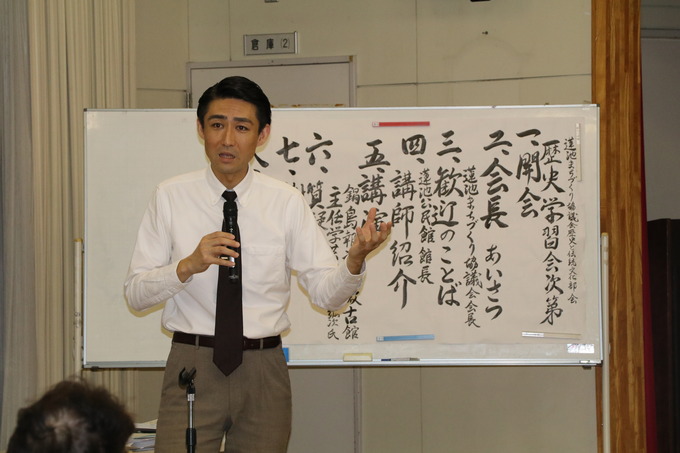 倉庫②
蓮池まちづくり協議会歴史と伝統文化部会
歴史学習会次第
一、開会
二、会長 あいさつ
蓮池まちづくり協議会会長
三、歓迎のことば
蓮池公民館館長
四、講師紹介
五、講演
鍋島
古館
主任学
氏
六、質
七、